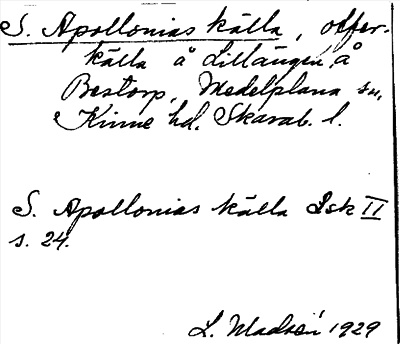 S. Apollonias källa, offer-
källa å Lillängen, å
Bestorp, Medelplana sn,
Kinne hd. Skarab. l.
S. Apollonias källa Isk II
s. 24.
L. 1929